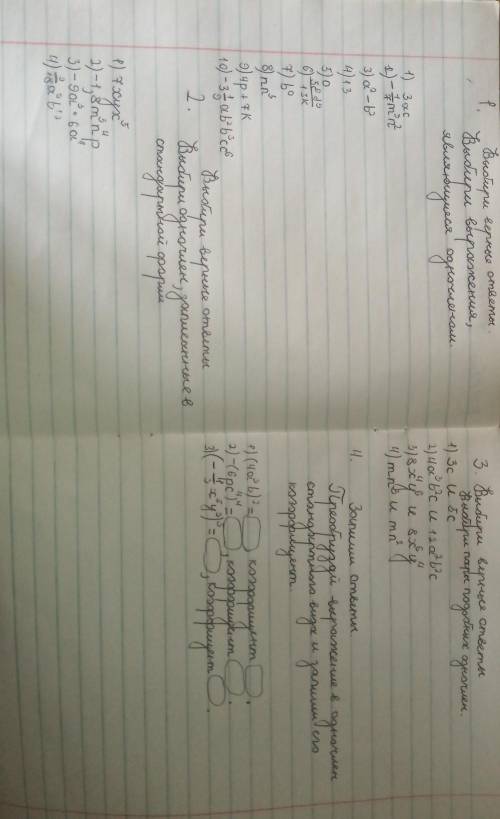 1. Выбири верные ответы.
Выбири выражения,
являющиеся одночленом.
1) 3ac
2) 1/7 m³n²
3) a²-b²
4) 13
5) 0
7) b⁰
8) nn³
9) 4p+7k
2. Выбири верные ответы
Выбири одночлен, записанные в
стандартной форме
1) 7xyx⁵
2) -1,8m³n⁴p
3) -9a³·6a⁴
3 Выбири верные ответы
Выбири пары подобных одночлен.
1) 3c и 5c
2) 4a³b²c и 12a²b²c
3) 8x⁴y⁶ и 8x⁶y⁴
4) mn³ и mn³
4. Запиши ответы
Преобразуй выражение в одночлен
стандартного вида и запиши его
коэффициент.
1) (4a²b)²= коэффициент .
2) -(6pc⁴)⁴= , коэффициент .
, коэффициент .